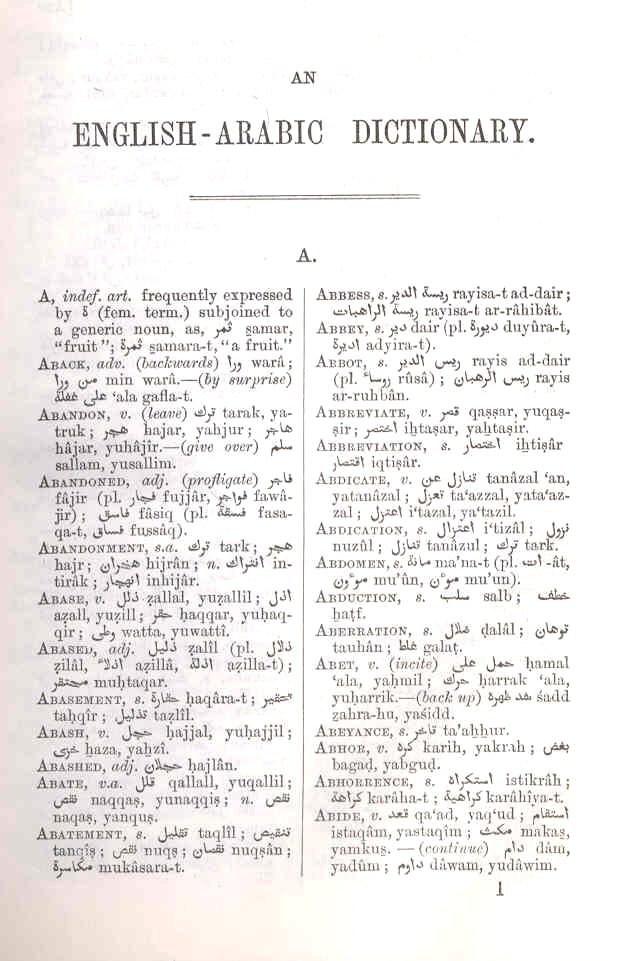 AN
ENGLISH-ARABIC DICTIONARY.
A.
A, indef. art. frequently expressed
by ة (fem. term.) subjoined to
a generic noun, as, ثمر s̱amar,
“fruit”; ثمرة s̱amara-t, “a fruit.”
ABACK, adv. (backwards) ورا warâ;
من ورا min warâ.—(by surprise)
على غفلة ‘ala gafla-t.
ABANDON, v. (leave) ترك tarak, ya-
truk; هجر hajar, yahjur; هاجر
hâjar, yuhâjir.—(give over) سلم
sallam, yusallim.
ABANDONED, adj. (profligate) فاجر
fâjir (pl. فجار fujjâr, فواجر fawâ-
jir); فاسق fâsiq (pl. فسقة fasa-
qa-t, فساق fussâq).
ABANDONMENT, s.a. ترك tark; هجر
hajr; هجران hijrân; n. انتراك in-
tirâk; انهجار inhijâr.
ABASE, v. ذلل ẕallal, yuẕallil; اذل
aẕall, yuẕill; حقر ḥaqqar, yuḥaq-
qir; وطى watta, yuwattî.
ABASED, adj. ذليل ẕalîl (pl. ذلال
ẕilâl, اذلا aẕillâ, اذلة aẕilla-t);
محتقر muḥtaqar.
ABASEMENT, s. حقارة ḥaqâra-t; تحقير
taḥqîr; تذليل taẕlîl.
ABASH, v. حجل ḥajjal, yuḥajjil;
خزى ḥaza, yaḥzî.
ABASHED, adj. حجلان ḥajlân.
ABATE, v.a. قلل qallall, yuqallil;
نقص naqqaṣ, yunaqqiṣ; n. نقص
naqaṣ, yanquṣ.
ABATEMENT, s. تقليل taqlîl; تنقيص
tanqîṣ; نقص nuqṣ; نقصان nuqṣân;
مكاسرة mukâsara-t.
ABBESS, s. ريسة الدير rayisa-t ad-dair;
ريسة الراهبات rayisa-t ar-râhibât.
ABBEY, s. دير dair (pl. ديورة duyûra-t,
اديرة adyira-t).
ABBOT, s. ريس الدير rayis ad-dair
(pl. روسا rûsâ); ريس الرهبان rayis
ar-ruhbân.
ABBREVIATE, v. قصر qaṣṣar, yuqaṣ-
ṣir; اختصر iḥtaṣar, yaḥtaṣir.
ABBREVIATION, s. اختصار iḥtiṣâr
اقتصار iqtiṣâr.
ABDICATE, v. تنازل عن tanâzal ‘an,
yatanâzal; تعزل ta‘azzal, yata‘az-
zal; اعتزل i‘tazal, ya‘tazil.
ABDICATION, s. اعتزال i‘tizâl; نزول
nuzûl; تنازل tanâzul; ترك tark.
ABDOMEN, s. مانة ma’na-t (pl. ات -ât,
موون mu’ûn, مون mu’un).
ABDUCTION, s. سلب salb; خطف
ḥaṭf.
ABERRATION, s. ضلال ḍalâl; توهان
tauhân; غلط galaṭ.
ABET, v. (incite) حمل على ḥamal
‘ala, yaḥmil; حرك ḥarrak ‘ala,
yuḥarrik.—(back up) شد ظهره śadd
ẓahra-hu, yaśidd.
ABEYANCE, s. تاخر ta’aḥḥur.
ABHOR, v. كره karih, yakrah; بغض
bagaḍ, yabguḍ.
ABHORRENCE, s. استكراه istikrâh;
كراهة karâha-t; كراهية karâhîya-t.
ABIDE, v. قعد qa‘ad, yaq‘ud; استقام
istaqâm, yastaqîm; مكث makas̱,
yamkus̱.—(continue) دام dâm,
yadûm; داوم dâwam, yudâwim.
1